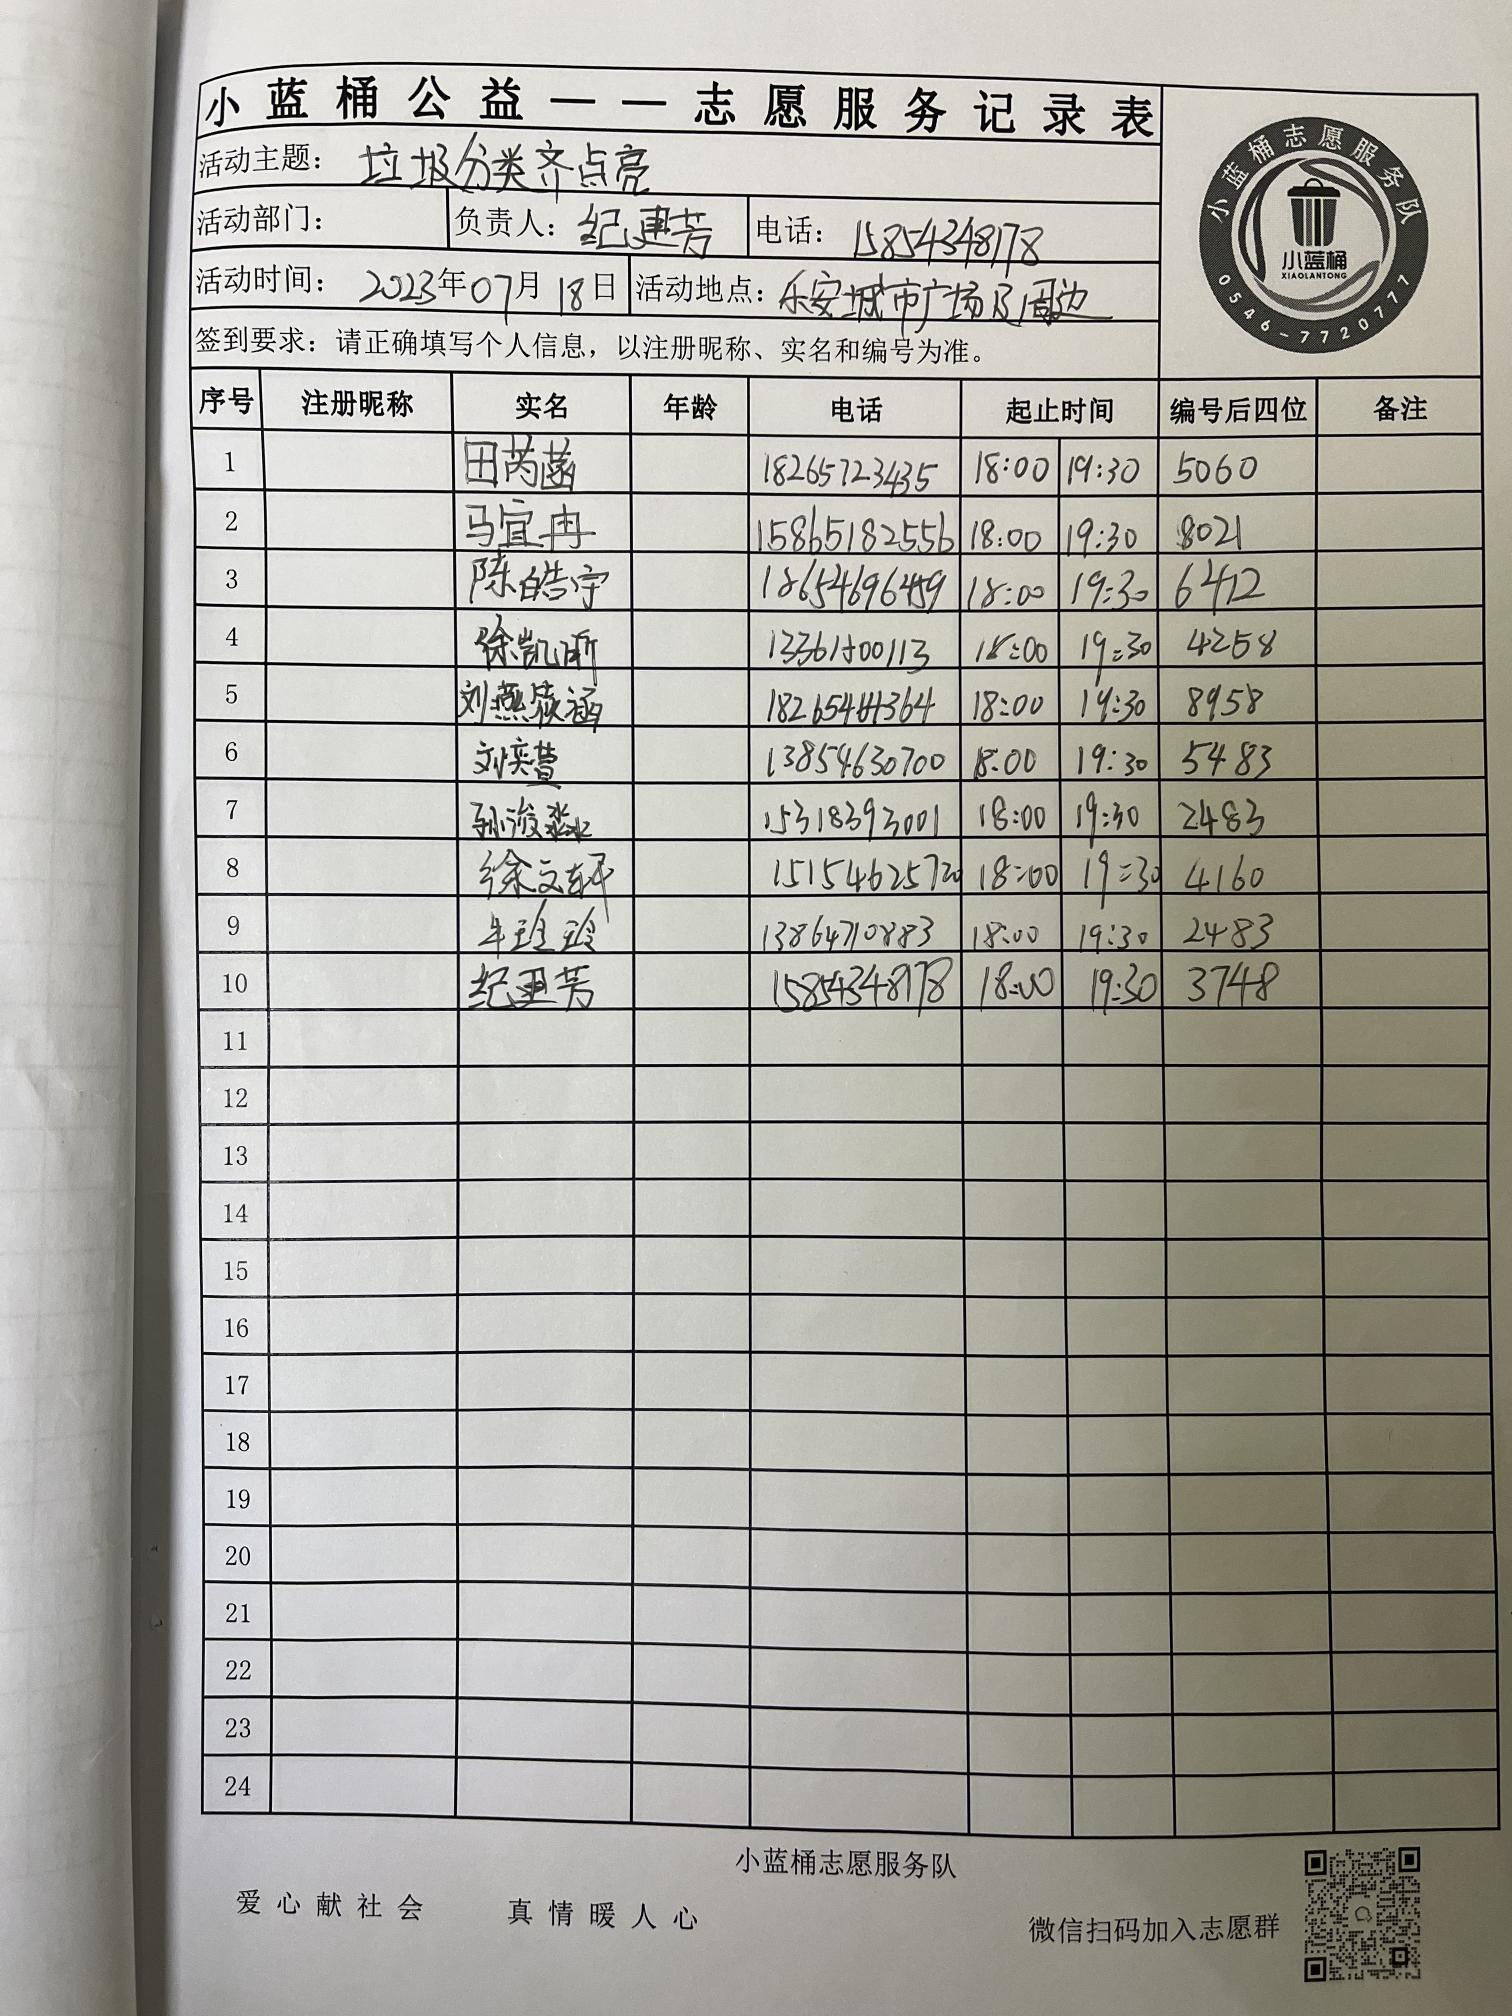 小蓝桶公益——志愿服务记录表
小蓝桶志愿服务队
小蓝桶
XIAOLANTONG
0546-7720777
活动主题： 垃圾分类齐点亮
活动部门： 负责人：纪建芳 电话：15854348178
活动时间： 2023年07月18日 活动地点：乐安城市广场及周边
签到要求：请正确填写个人信息，以注册昵称、实名和编号为准。
序号 注册昵称 实名 年龄 电话 起止时间 编号后四位 备注
1 田芮菡 18265723435 18:00 19:30 5060
2 马宜冉 15865182556 18:00 19:30 8021
3 陈皓宇 18654696459 18:00 19:30 6412
4 徐凯昕 13361500113 18:00 19:30 4258
5 刘燕筱涵 18265441364 18:00 19:30 8958
6 刘奕萱 13854630700 18:00 19:30 5483
7 孙浚淼 15318393001 18:00 19:30 2483
8 徐文轩 15154625720 18:00 19:30 4160
9 牟玲玲 13864710883 18:00 19:30 2483
10 纪建芳 15854348178 18:00 19:30 3748
11
12
13
14
15
16
17
18
19
20
21
22
23
24
小蓝桶志愿服务队
爱心献社会 真情暖人心
微信扫码加入志愿群